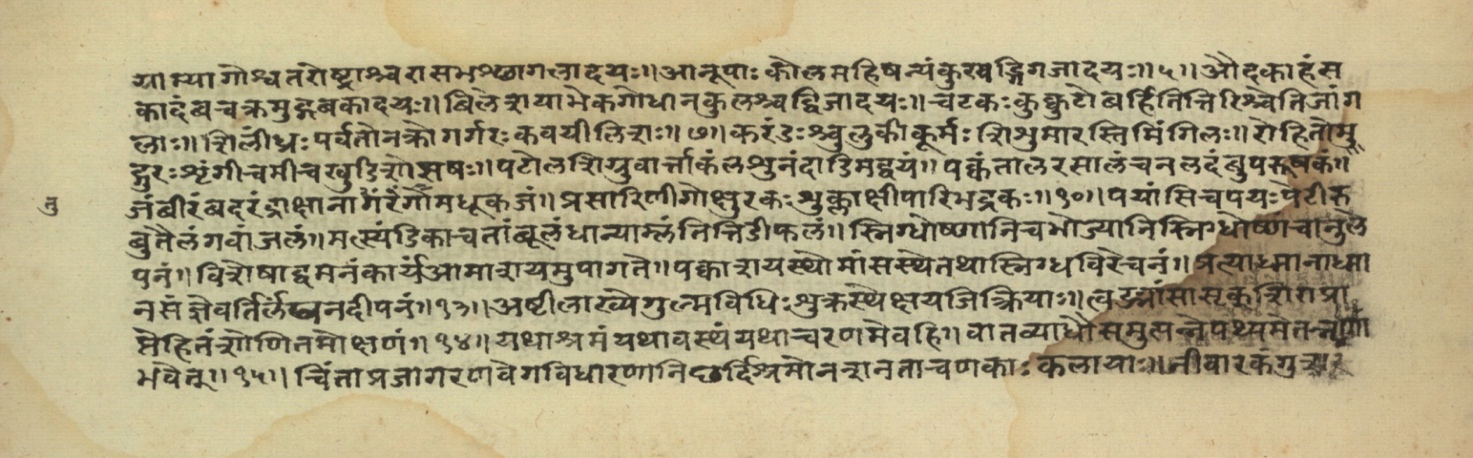 याम्यागोश्वतरोष्ट्राश्वरासभश्छागलादयः॥आनूपाः कोलमहिषन्यंकुखड्गिगजादयः॥५॥औदकाहंस
कादंबचक्रमुद्गबकादयः॥बिलेशयाभेकगोधानकुलश्वद्विजादयः॥चटकःकुक्कुटोबर्हितित्तिरिश्चेतिजांग
लाः॥शिलींध्रःपर्वतोनक्रोगर्गरःकवयीलिशः॥७॥करंडःश्चुलुकीकूर्मःशिशुमारस्तिमिंगिलः॥रोहितोमु
द्गुरःशृंगीचमीचखुडिशोझषः॥पटोलशिग्रुवार्त्ताकंलशुनंदाडिमद्वयं॥पक्वंतालरसालंचनलदंबुपरूषकं॥
जंबीरंबदरंद्राक्षानागरंगोंमधूकजं॥प्रसारिणीगोक्षुरकःशुक्लाक्षीपारिभद्रकः॥१०॥पयांसिचपयःपेटीरु
तु
बुतैलंगवांजलं॥मत्स्यंडिकाचतांबूलंधान्याम्लंतिंतिडीफलं॥स्निग्धोष्णानिचभोज्यानिस्निग्धोष्णंचानुले
पनं॥विशेषाद्वमनंकार्यंआमाशयमुपागते॥पक्वाशयस्थेमांसस्थेतथास्निग्धविरेचनं॥प्रत्याध्मानाध्मा
नसंज्ञेवर्तिर्लंघनदीपनं॥१३॥अष्टीलाख्येगुल्मविधिःशुक्रस्थेक्षयजित्क्रियाः॥त्वङ्मांसासृक्शिराप्रा
प्तेहितंशोणितमोक्षणं॥१४॥यथाश्रमंयथावस्थंयथाचरणमेवहि॥वातव्याधौसमुत्पन्नेपथ्यमेतन्नृणां
भवेत्॥१५॥चिंताप्रजागरणवेगविधारणानिछर्दिश्रमोनशनताचणकाःकलायाः॥नीवारकंगु